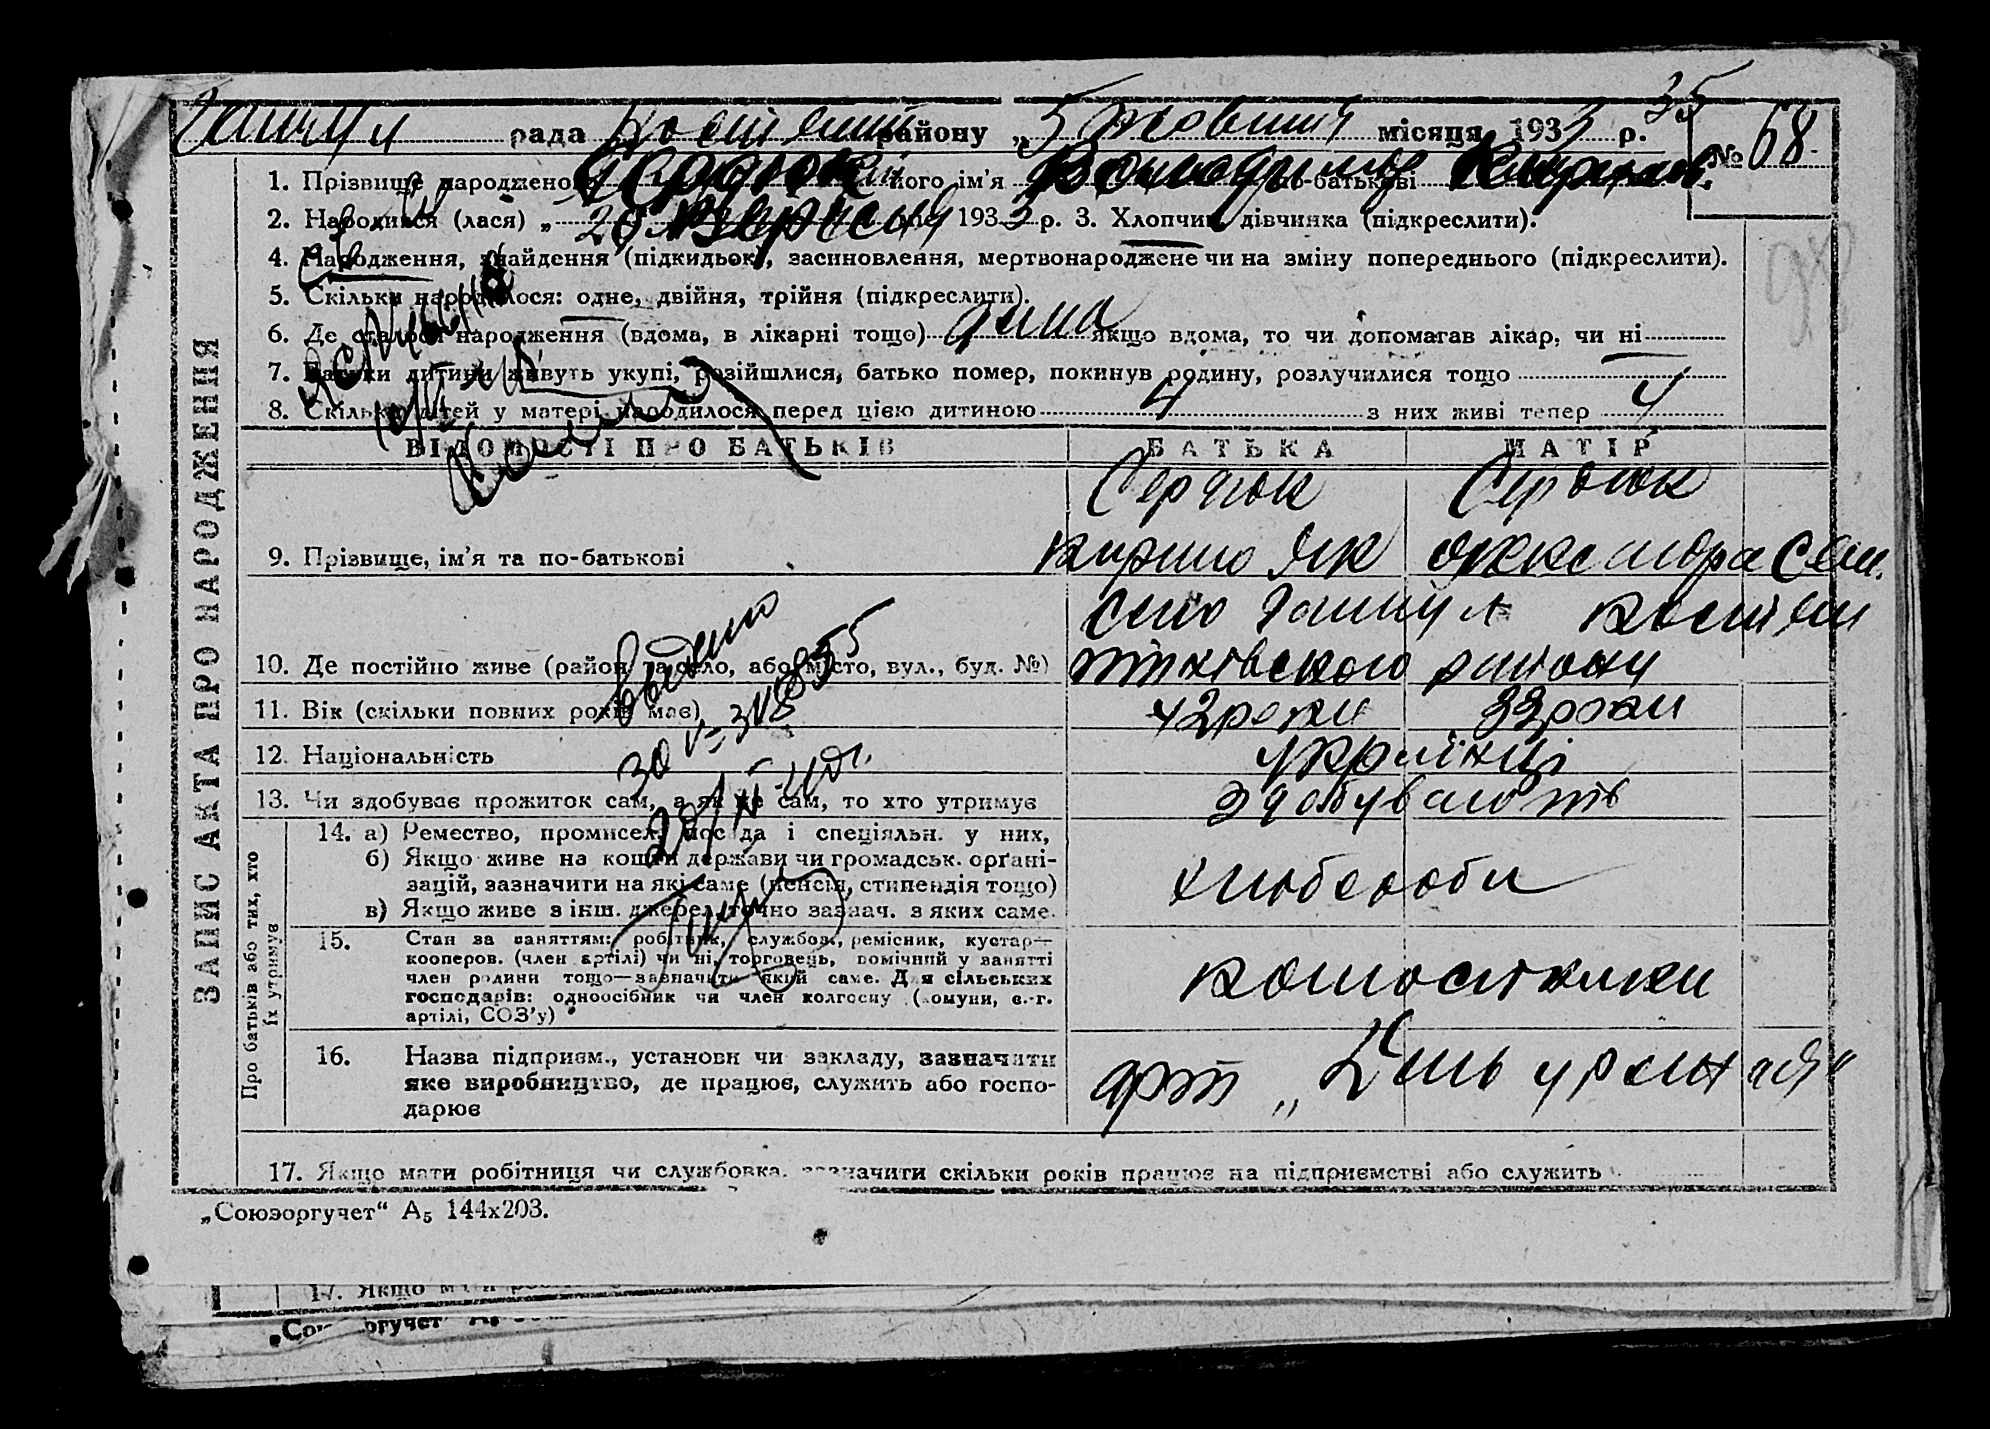 35
рада району „5 жовтня місяця 1933 р. № 68
1. Прізвище народженого Сердюк його ім'я Володимир по-батькові
2. Народився (лася) „20 вересня 1933 р. 3. Хлопчик, дівчинка (підкреслити).
4. Народження, знайдення (підкидьок), засиновлення, мертвонароджене чи на зміну попереднього (підкреслити).
5. Скільки народилося: одне, двійня, трійня (підкреслити).
6. Де сталося народження (вдома, в лікарні тощо) дома якщо вдома, то чи допомагав лікар, чи ні
7. Батьки дитини живуть укупі, розійшлися, батько помер, покинув родину, розлучилися тощо
8. Скільки дітей у матері народилося перед цією дитиною 4 з них живі тепер 4
ВІДОМОСТІ ПРО БАТЬКІВ БАТЬКА МАТІР
Сердюк Сердюк
9. Прізвище, ім'я та по-батькові Кирило Як Олександра Сем.
село
10. Де постійно живе (район та село, або місто, вул., буд. №) району
11. Вік (скільки повних років має) 42 роки 33 роки
12. Національність українці
13. Чи здобуває прожиток сам, а як не сам, то хто утримує здобувають
14. а) Ремество, промисел, посада і спеціяльн. у них,
б) Якщо живе на кошти держави чи громадськ. орґані-
зацій, зазначити на які саме (пенсія, стипендія тощо)
в) Якщо живе з інш. джерел, точно зазнач. з яких саме.
хлібороби
15. Стан за заняттям: робітник, службов., ремісник, кустар—
кооперов. (член артілі) чи ні, торговець, помічний у занятті
член родини тощо—зазначити який саме. Для сільських
господарів: одноосібник чи член колгоспу (комуни, с.-г.
артілі, СОЗ'у)
колгоспники
16. Назва підприєм., установи чи закладу, зазначити
яке виробництво, де працює, служить або госпо-
дарює
арт „День урожая"
17. Якщо мати робітниця чи службовка, зазначити скільки років працює на підприємстві або служить
ЗАПИС АКТА ПРО НАРОДЖЕННЯ
Про батьків або тих, хто
їх утримує
„Союзоргучет" А5 144х203.
17. Якщо